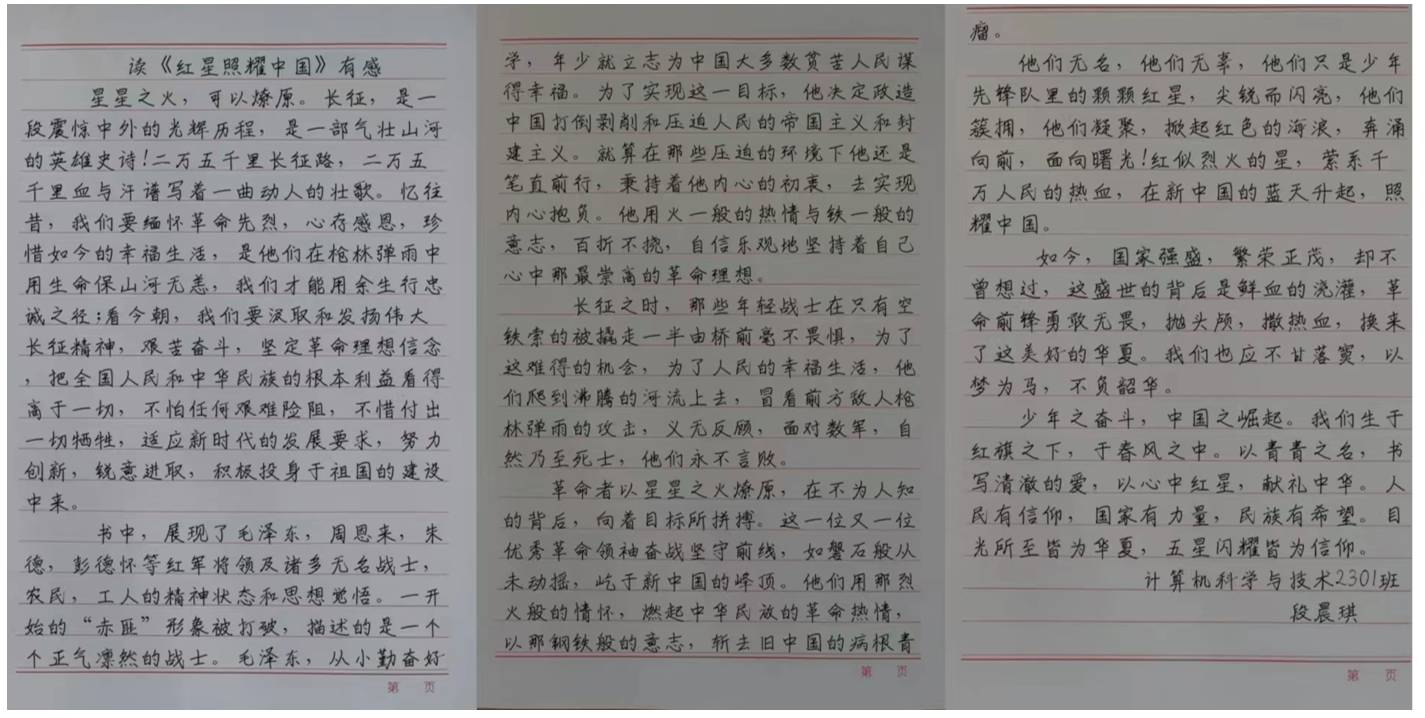 读《红星照耀中国》有感
星星之火，可以燎原。长征，是一
段震惊中外的光辉历程，是一部气壮山河
的英雄史诗！二万五千里长征路，二万五
千里血与汗谱写着一曲动人的壮歌。忆往
昔，我们要缅怀革命先烈，心存感恩，珍
惜如今的幸福生活，是他们在枪林弹雨中
用生命保山河无恙，我们才能用余生行忠
诚之径；看今朝，我们要汲取和发扬伟大
长征精神，艰苦奋斗，坚定革命理想信念
，把全国人民和中华民族的根本利益看得
高于一切，不怕任何艰难险阻，不惜付出
一切牺牲，适应新时代的发展要求，努力
创新，锐意进取，积极投身于祖国的建设
中来。
书中，展现了毛泽东，周恩来，朱
德，彭德怀等红军将领及诸多无名战士，
农民，工人的精神状态和思想觉悟。一开
始的“赤匪”形象被打破，描述的是一个
个正气凛然的战士。毛泽东，从小勤奋好
第 页
学，年少就立志为中国大多数贫苦人民谋
得幸福。为了实现这一目标，他决定政造
中国打倒剥削和压迫人民的帝国主义和封
建主义。就算在那些压迫的环境下他还是
笔直前行，秉持着他内心的初衷，去实现
内心抱负。他用火一般的热情与铁一般的
意志，百折不挠，自信乐观地坚持着自己
心中那最崇高的革命理想。
长征之时，那些年轻战士在只有空
铁索的被撬走一半由桥前毫不畏惧，为了
这难得的机会，为了人民的幸福生活，他
们爬到沸腾的河流上去，冒看前方敌人枪
林弹雨的攻击，义无反顾，面对数军，自
然乃至死士，他们永不言败。
革命者以星星之火燎原，在不为人知
的背后，向着目标所拼搏。这一位又一位
优秀革命领袖奋战坚守前线，如磐石般从
未动摇，屹于新中国的峰顶。他们用那烈
火般的情怀，燃起中华民放的革命热情，
以那钢铁般的意志，斩去旧中国的病根青
第 页
瘤。
他们无名，他们无辜，他们只是少年
先锋队里的颗颗红星，尖锐而闪亮，他们
簇拥，他们凝聚，掀起红色的海浪，奔涌
向前，面向曙光！红似烈火的星，萦系千
万人民的热血，在新中国的蓝天升起，照
耀中国。
如今，国家强盛，繁荣正茂，却不
曾想过，这盛世的背后是鲜血的浇灌，革
命前锋勇敢无畏，抛头颅，撒热血，换来
了这美好的华夏。我们也应不甘落寞，以
梦为马，不负韶华。
少年之奋斗，中国之崛起。我们生于
红旗之下，于春风之中。以青青之名，书
写清澈的爱，以心中红星，献礼中华。人
民有信仰，国家有力量，民族有希望。目
光所至皆为华夏，五星闪耀皆为信仰。
计算机科学与技术2301班
段晨琪
第 页